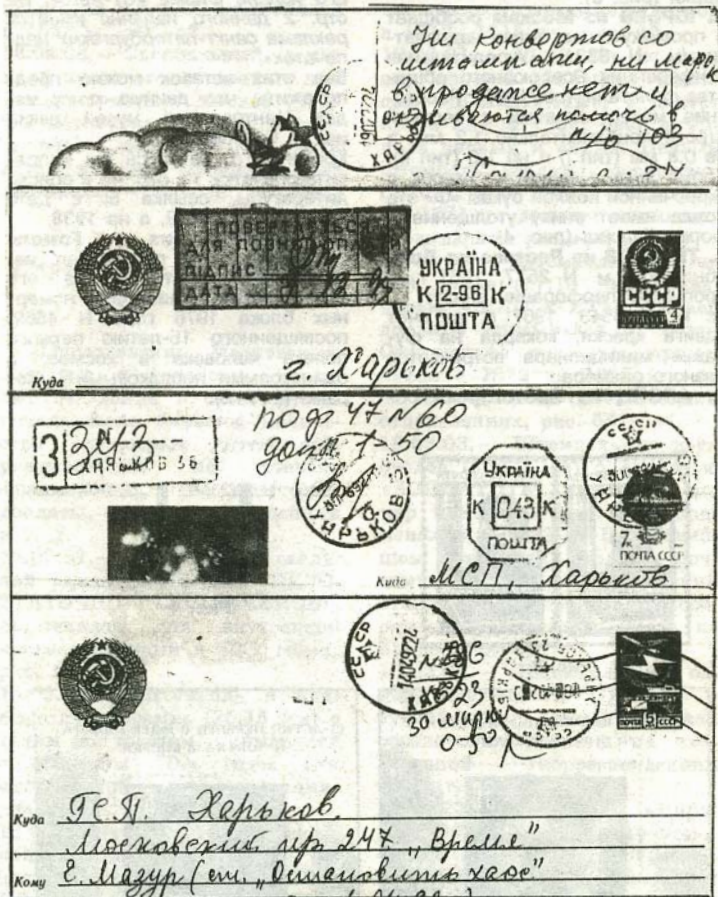 Ни конвертов со
штампами, ни марок
в продаже нет и
отказываются помочь в
п/о 103
СССР
190692-24
ХАРЬКОВ
ПОВЕРТАЄТЬСЯ
ДЛЯ ПОВНОЇ ОПЛАТИ
ПІДПИС
ДАТА
УКРАЇНА
К 2-96 К
ПОШТА
СССР
4
Куда г. Харьков
З N 313
ХАРЬКОВ 36
по ф. 47 N 60
допл. 1-50
ХАРЬКОВ
УКРАЇНА
К 043 К
ПОШТА
СССР
7к
ПОЧТА СССР
Куда МСП, Харьков
СССР
140492-24
ХАРЬКОВ
30 марки
0-50
ХАРКІВ
СССР
ПОЧТА 5 СССР
Куда Г.С.П. Харьков.
Московский пр 247 „Время"
Кому Е. Мазур (ст. „Остановить хаос"